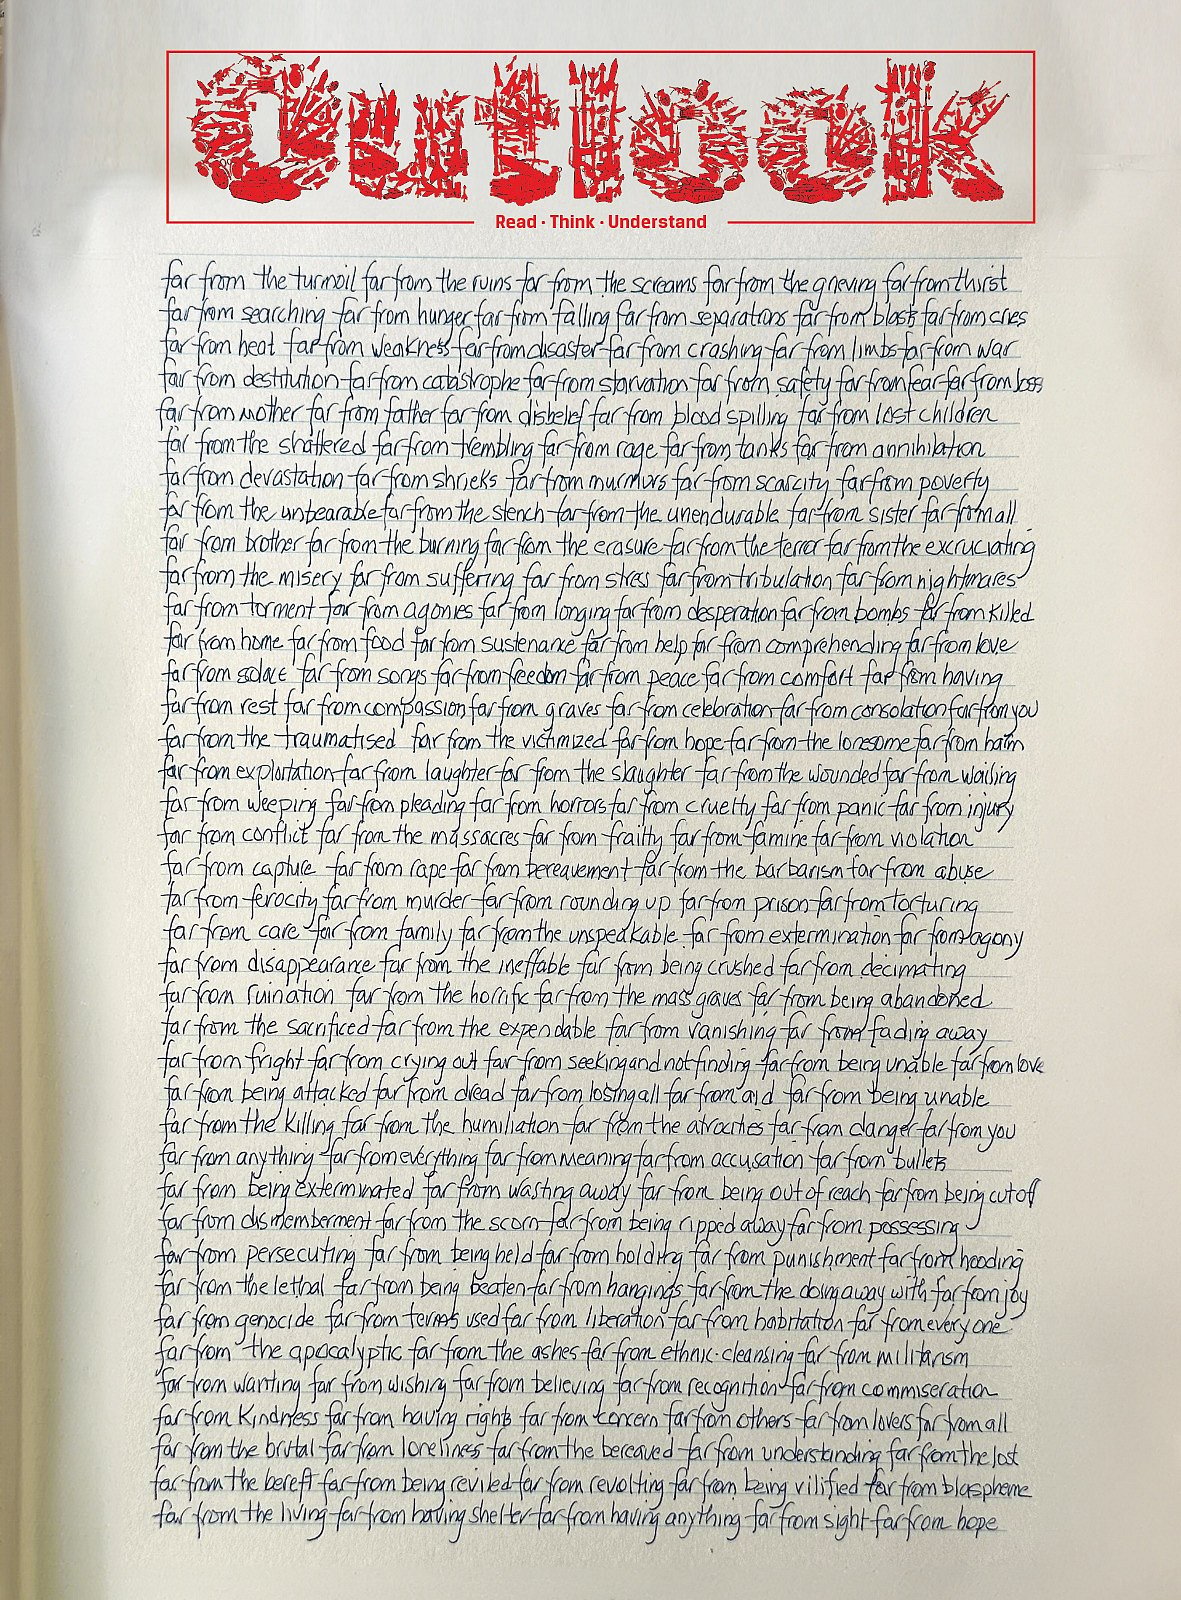 Outlook
Read · Think · Understand
far from the turmoil far from the ruins far from the screams far from the grieving far from thirst
far from searching far from hunger far from falling far from separations far from blasts far from cries
far from heat far from weakness far from disaster far from crashing far from limbs far from war
far from destitution far from catastrophe far from starvation far from safety far from fear far from loss
far from mother far from father far from disbelief far from blood spilling far from lost children
far from the shattered far from trembling far from rage far from tanks far from annihilation
far from devastation far from shrieks far from murmurs far from scarcity far from poverty
far from the unbearable far from the stench far from the unendurable far from sister far from all
far from brother far from the burning far from the erasure far from the terror far from the excruciating
far from the misery far from suffering far from stress far from tribulation far from nightmares
far from torment far from agonies far from longing far from desperation far from bombs far from killed
far from home far from food far from sustenance far from help far from comprehending far from love
far from solace far from songs far from freedom far from peace far from comfort far from having
far from rest far from compassion far from graves far from celebration far from consolation far from you
far from the traumatised far from the victimized far from hope far from the lonesome far from balm
far from exploitation far from laughter far from the slaughter far from the wounded far from wailing
far from weeping far from pleading far from horrors far from cruelty far from panic far from injury
far from conflict far from the massacres far from frailty far from famine far from violation
far from capture far from rape far from bereavement far from the barbarism far from abuse
far from ferocity far from murder far from rounding up far from prison far from torturing
far from care far from family far from the unspeakable far from extermination far from agony
far from disappearance far from the ineffable far from being crushed far from decimating
far from ruination far from the horrific far from the mass graves far from being abandoned
far from the sacrificed far from the expendable far from vanishing far from fading away
far from fright far from crying out far from seeking and not finding far from being unable far from love
far from being attacked far from dread far from losing all far from aid far from being unable
far from the killing far from the humiliation far from the atrocities far from danger far from you
far from anything far from everything far from meaning far from accusation far from bullets
far from being exterminated far from wasting away far from being out of reach far from being cut off
far from dismemberment far from the scorn far from being ripped away far from possessing
far from persecuting far from being held far from holding far from punishment far from hooding
far from the lethal far from being beaten far from hangings far from the doing away with far from joy
far from genocide far from terms used far from liberation far from habitation far from every one
far from the apocalyptic far from the ashes far from ethnic-cleansing far from militarism
far from wanting far from wishing far from believing far from recognition far from commiseration
far from kindness far from having rights far from concern far from others far from lovers far from all
far from the brutal far from loneliness far from the bereaved far from understanding far from the lost
far from the bereft far from being reviled far from revolting far from being vilified far from blaspheme
far from the living far from having shelter far from having anything far from sight far from hope